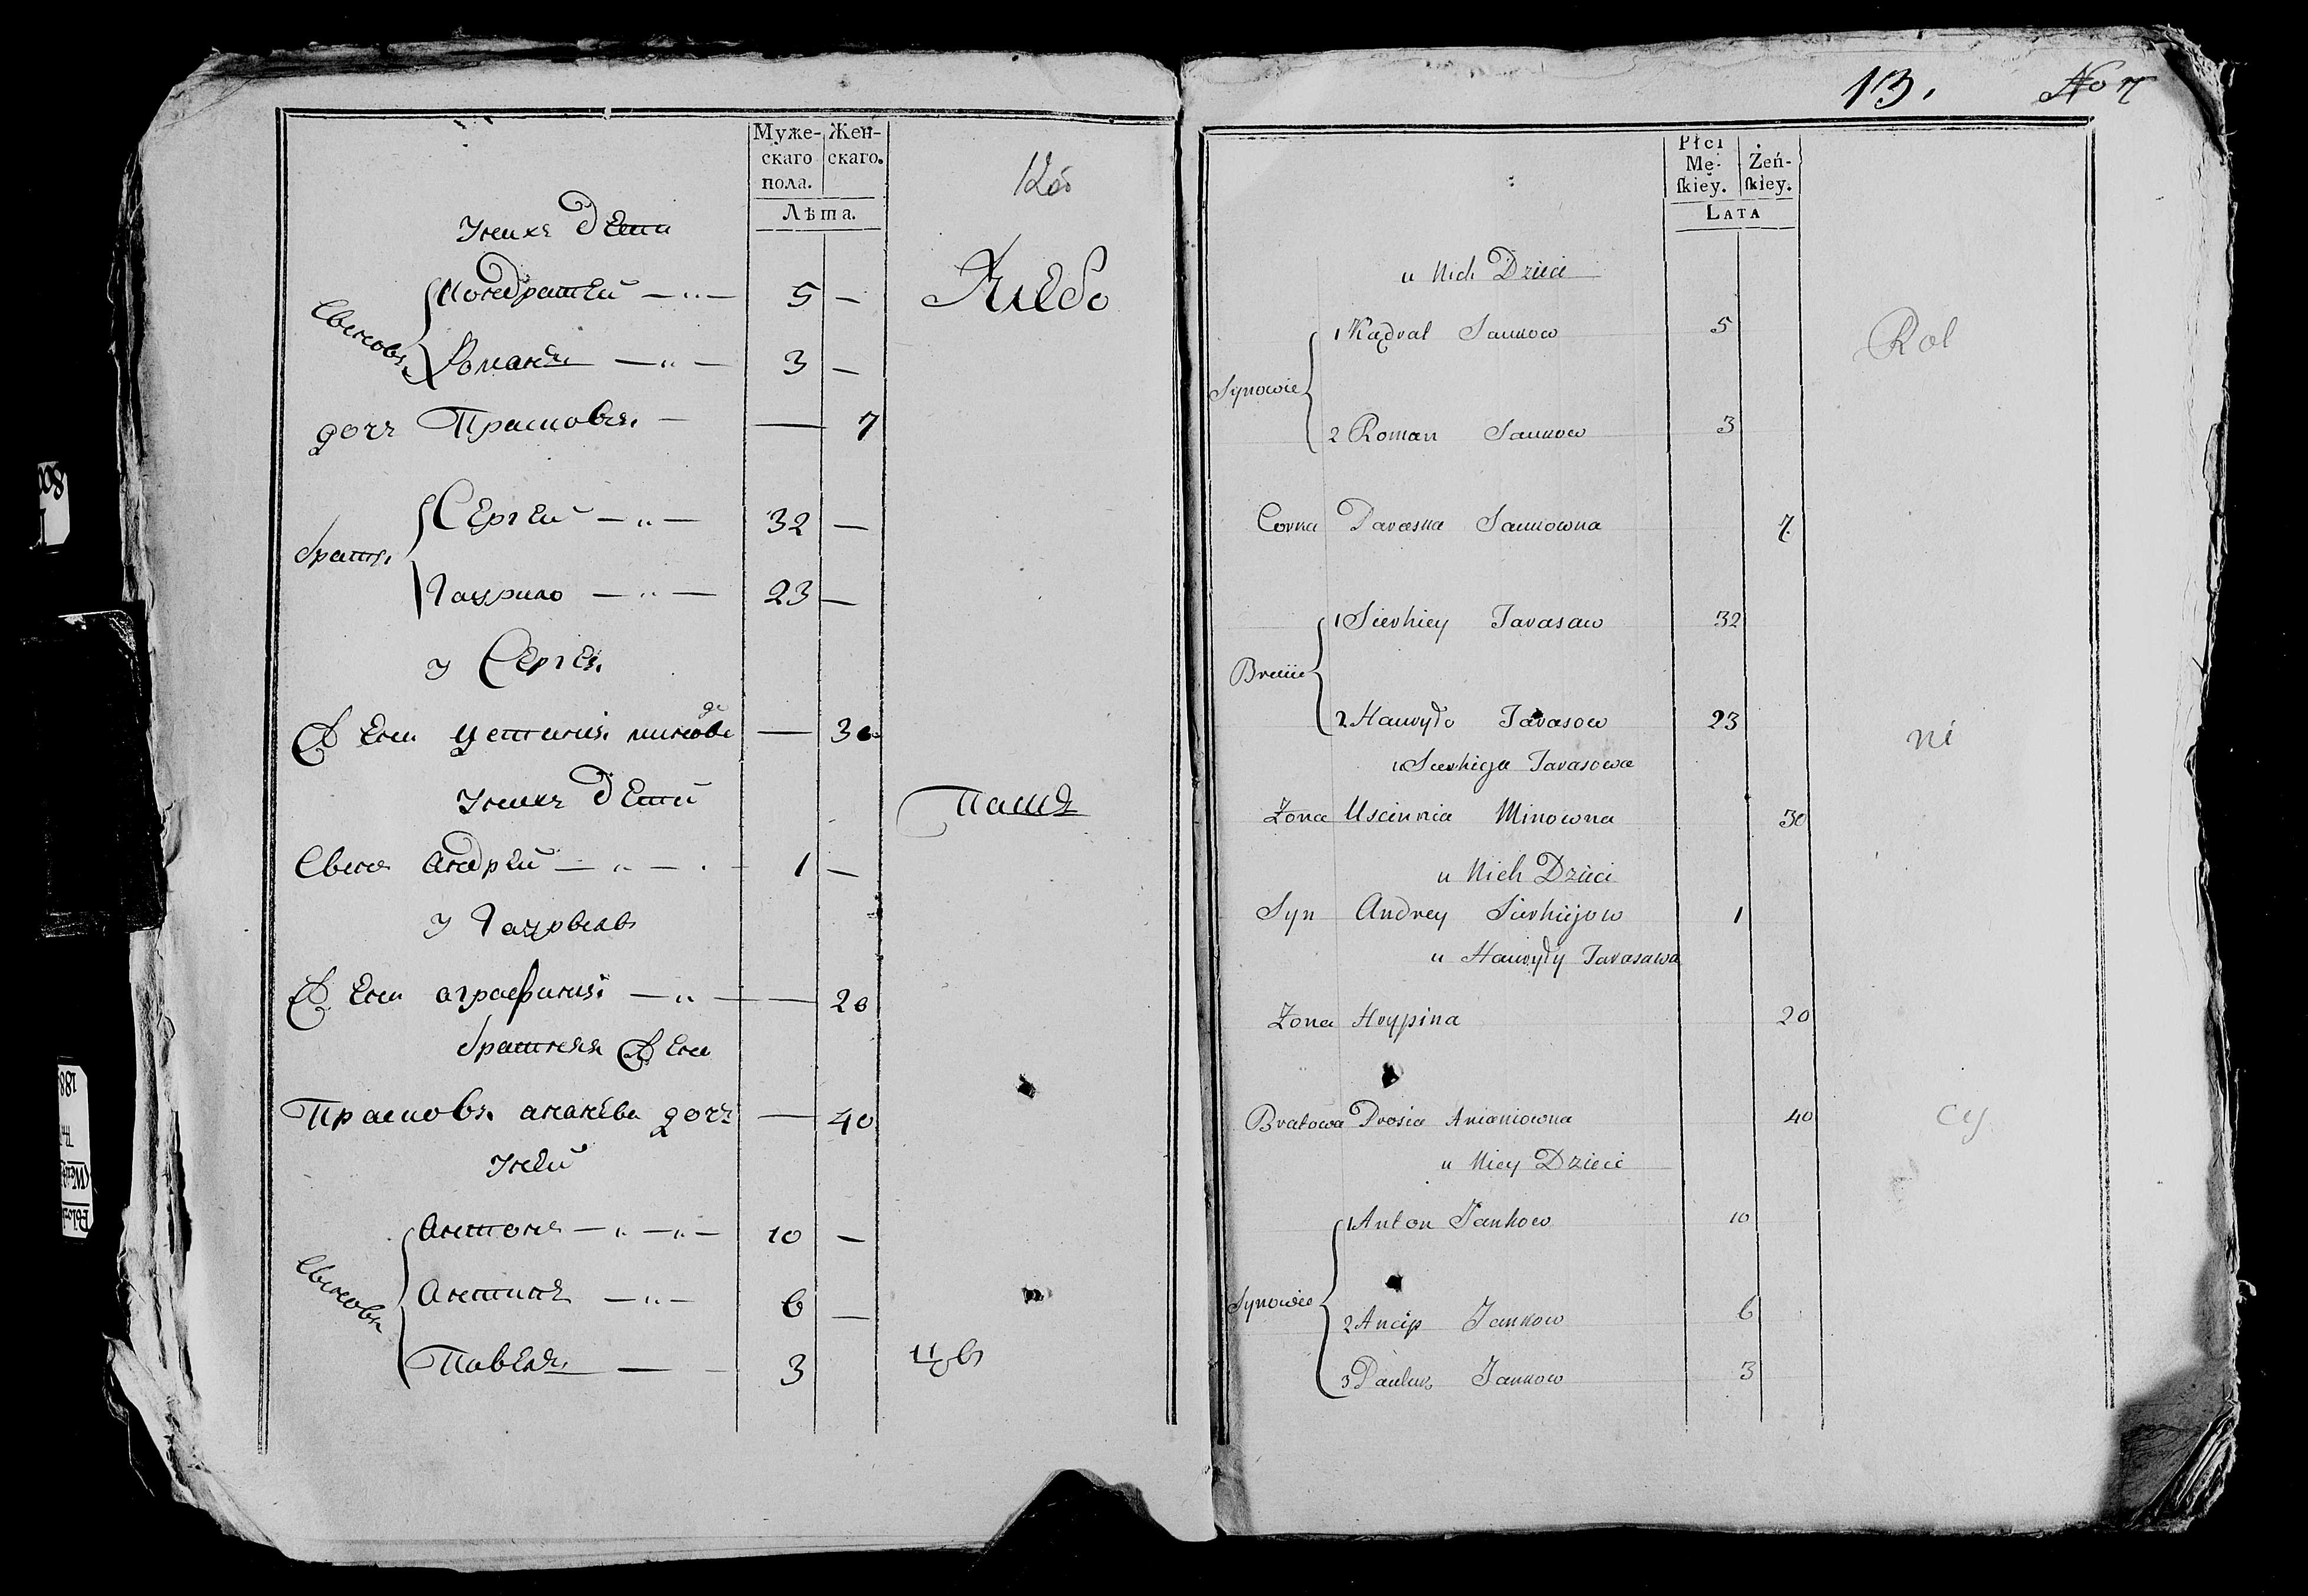 Муже- Жен-
скаго скаго.
пола.
Лѣта.
12об
Унихъ дети
Сынове
Кондратей 5 —
Хлебо
Романъ 3 —
дочь Прасковья — 7
братья
Сергей 32 —
Гаурило 23 —
у Сергея
Жена Устинья — 30
Унихъ дети
Пашъ
Сынъ Андрей 1 —
у Гаурылы
Жена аграфинья — 20
братняя Жена
Прасковья ананьева дочь — 40
Уней
Сыновья
Антонъ 10 —
Антипъ 6 —
Павелъ 3
цовъ
13. No 7
Płci
Mę- Żeń-
skiey. skiey.
LATA
u Nich Dzieci
Synowie
1 Kądrat Jankow 5
Rol
2 Roman Jankow 3
Corka Paraska Jankowna 7
Bracia
1 Sierhiey Tarasaw 32
2 Hawryło Tarasow 23
u Sierhieja Tarasowa
ni
Żona Uscinnia Minowna 30
u Nich Dzieci
Syn Andrey Sierhiejow 1
u Hawryły Tarasawa
Żona Hrypina 20
Bratowa Prosia Ananiowna 40
cy
u Niey Dzieci
Synowie
1 Anton Jankow 10
2 Ancip Jankow 6
3 Pauluk Jankow 3